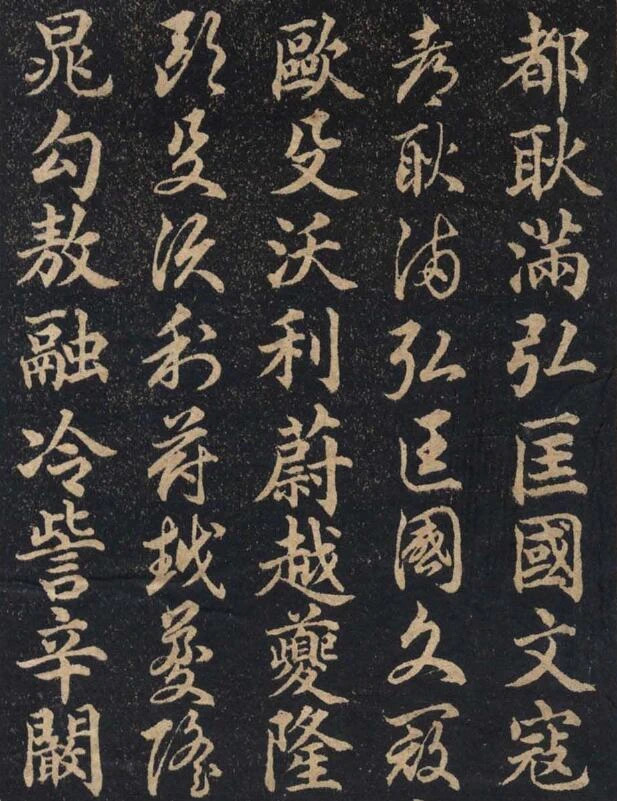 都耿滿弘匡國文寇
都耿滿弘匡國文寇
歐殳沃利蔚越夔隆
歐殳沃利蔚越夔隆
晁勾敖融冷訾辛闞